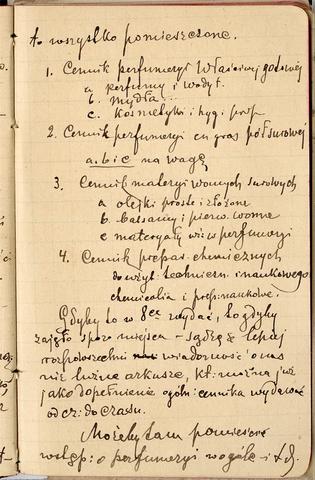 to wszystko pomieszczone.
1. Cennik perfumeryi właściwej gotowej
a perfumy i wody t.
b. mydła...
c. kosmetyki i hyg: prep
2. Cennik perfumeryi en gros półsurowej
a. b i c na wagę
3. Cennik materyj wonnych surowych
a olejki proste i złożone
b. balsamy i pierw. wonne
c materyały
w perfumeryi
4. Cennik prepar. chemicznych
do użyt: techniczn. i naukowego
chemicalia i prep: naukowe.
Gdyby to w 8ce wydać, to gdyby
zajęło sporo miejsca – sądzę że lepiej
rozpowszechni wiadomość o nas
niż luźne arkusze, kt: można już
jako dopełnienie ogóln: cennika wydawać
od cz: do czasu.
Możeby tam pomieścić
wstęp: o perfumeryi wogóle i t.d.